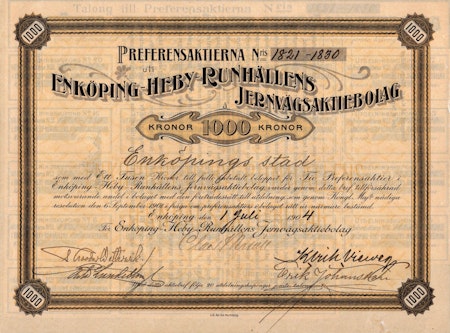 Talong till Preferensaktierna Nris
1000 1000
PREFERENSAKTIERNA Nris 1821-1830
uti
ENKÖPING-HEBY-RUNHÄLLENS
JERNVÄGSAKTIEBOLAG
Å
KRONOR 1000 KRONOR
Enköpings stad
som med Ett Tusen Kronor till fulla inbetalt beloppet för Tio Preferensaktier i
Enköping-Heby-Runhällens Jernvägsaktiebolag, under genom detta bref tillförsäkrad
motsvarande andel i bolaget med den företrädesrätt till utdelning som genom Kongl. Maj:ts nådiga
resolution den
Enköping den 1 Juli 1904
För Enköping-Heby-Runhällens Jernvägsaktiebolag
Ulrik Vieweg
Erik Johansson
1000 1000